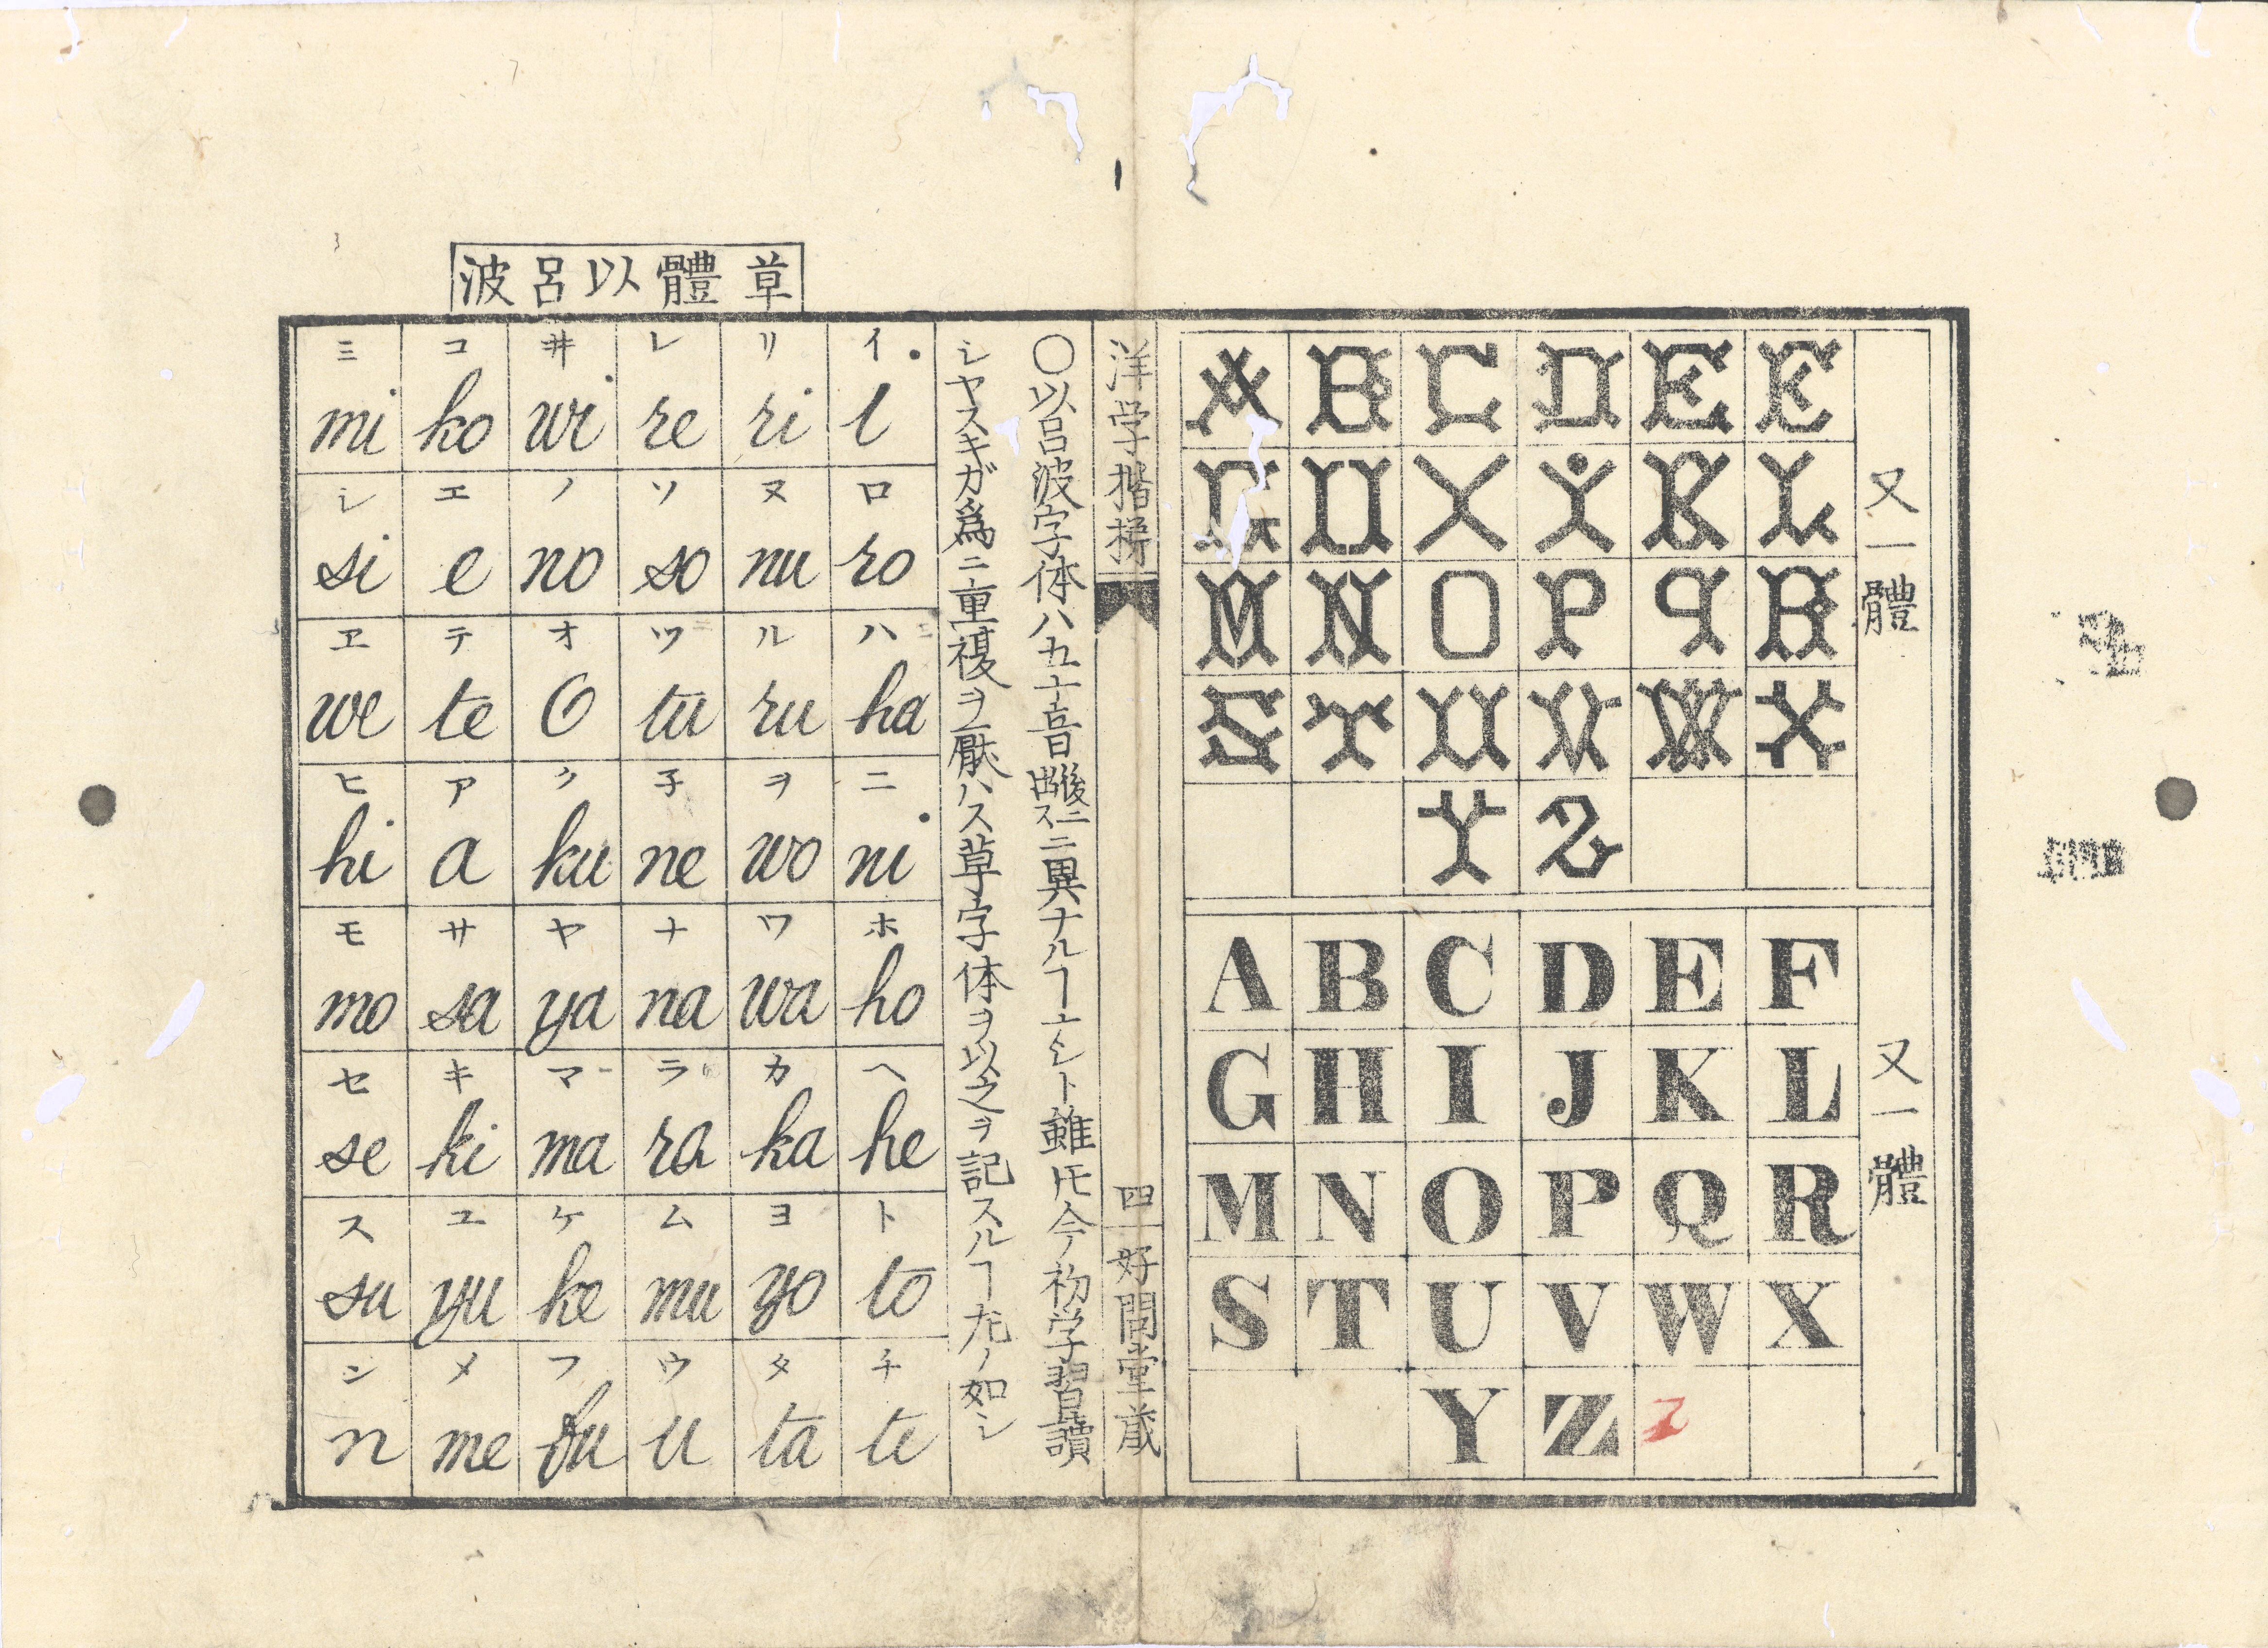 又一體
A B C D E F
G H I J K L
M N O P Q R
S T U V W X
Y Z
又一體
A B C D E F
G H I J K L
M N O P Q R
S T U V W X
Y Z Z
洋学楷梯
四
好問堂蔵
〇以呂波字体ハ五十音後ニ出スニ異ナルヿナシト雖𪜈今初学習讀
シヤスキガ爲ニ重複ヲ厭ハス草字体ヲ以之ヲ記スルヿ左ノ如シ
草體以呂波
イ i
ロ ro
ハ ha
ニ ni
ホ ho
ヘ he
ト to
チ ti
リ ri
ヌ nu
ル ru
ヲ wo
ワ wa
カ ka
ヨ yo
タ ta
レ re
ソ so
ツ tu
子 ne
ナ na
ラ ra
ム mu
ウ u
井 wi
ノ no
オ o
ク ku
ヤ ya
マ ma
ケ ke
フ fu
コ ko
エ e
テ te
ア a
サ sa
キ ki
ユ yu
メ me
ミ mi
シ si
ヱ we
ヒ hi
モ mo
セ se
ス su
ン n